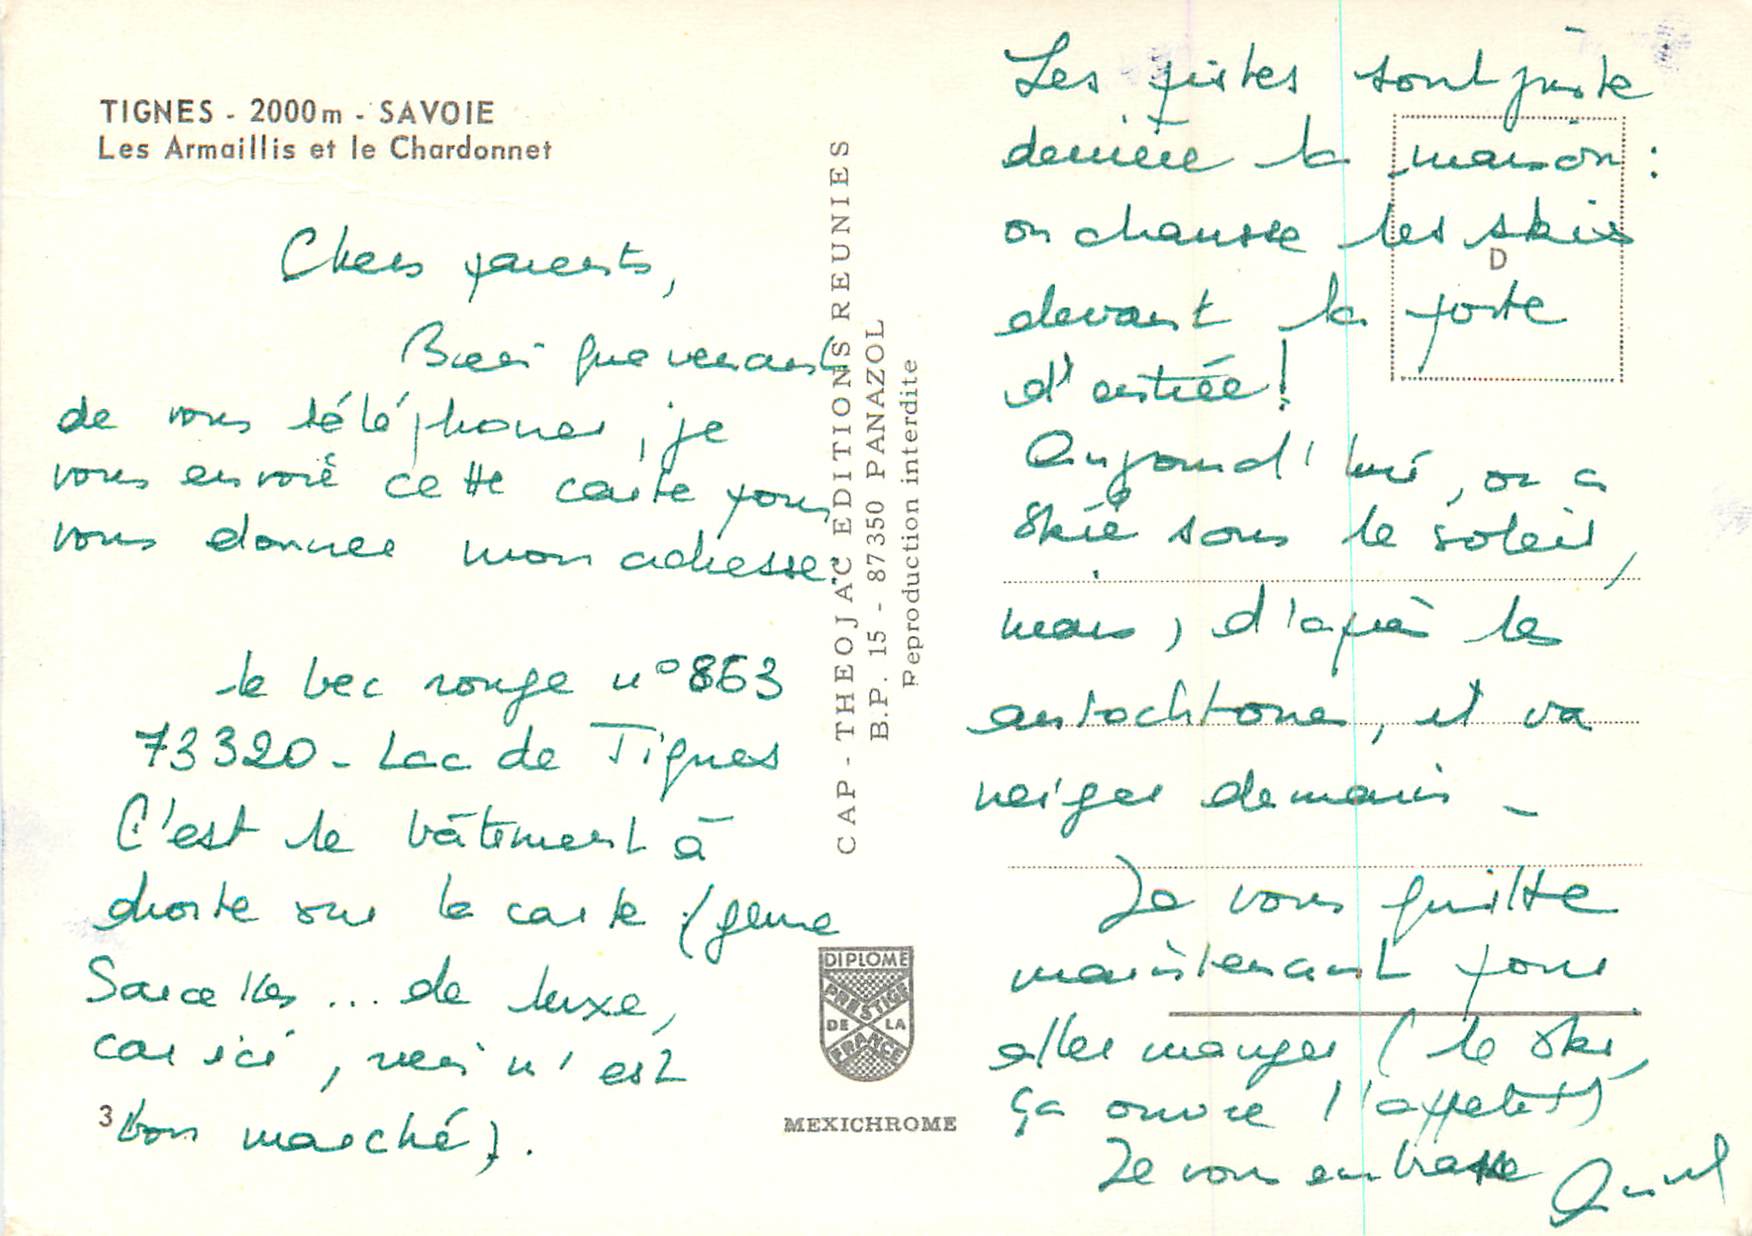 TIGNES - 2000m - SAVOIE
Les Armaillis et le Chardonnet
Chers parents,
Bien que venant
de vous téléphoner, je
vous envoie cette carte pour
vous donner mon adresse.
le bec rouge n° 863
73320 - Lac de Tignes
C'est le bâtiment à
droite sur la carte (genre
Sarcelles ... de luxe,
car ici, rien n'est
bon marché).
3
CAP - THEOJAC EDITIONS REUNIES
B.P. 15 - 87350 PANAZOL
Reproduction interdite
DIPLOME
PRESTIGE
DE LA
FRANCE
MEXICHROME
D
Les pistes sont juste
derrière la maison :
on chausse les skis
devant la porte
d'entrée !
Aujourd'hui, on a
skié sous le soleil,
mais, d'après les
autochtones, il va
neiger demain -
Je vous quitte
maintenant pour
aller manger (le ski,
ça ouvre l'appétit)
Je vous embrasse